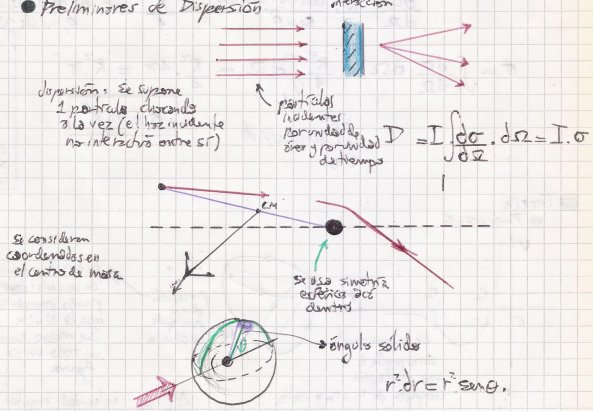 ● Preliminares de Dispersión
interacción
dispersión: Se supone
1 partícula chocando
a la vez (el haz incidente
no interactúa entre sí)
partículas
incidentes
por unidad de
área y por unidad
de tiempo
D = I ∫ dσ/dΩ . dΩ = I.σ
C.M
Se consideran
coordenadas en
el centro de masa
Se usa simetría
esférica acá
dentro
θ
ángulo sólido
r².dr = r² senθ.